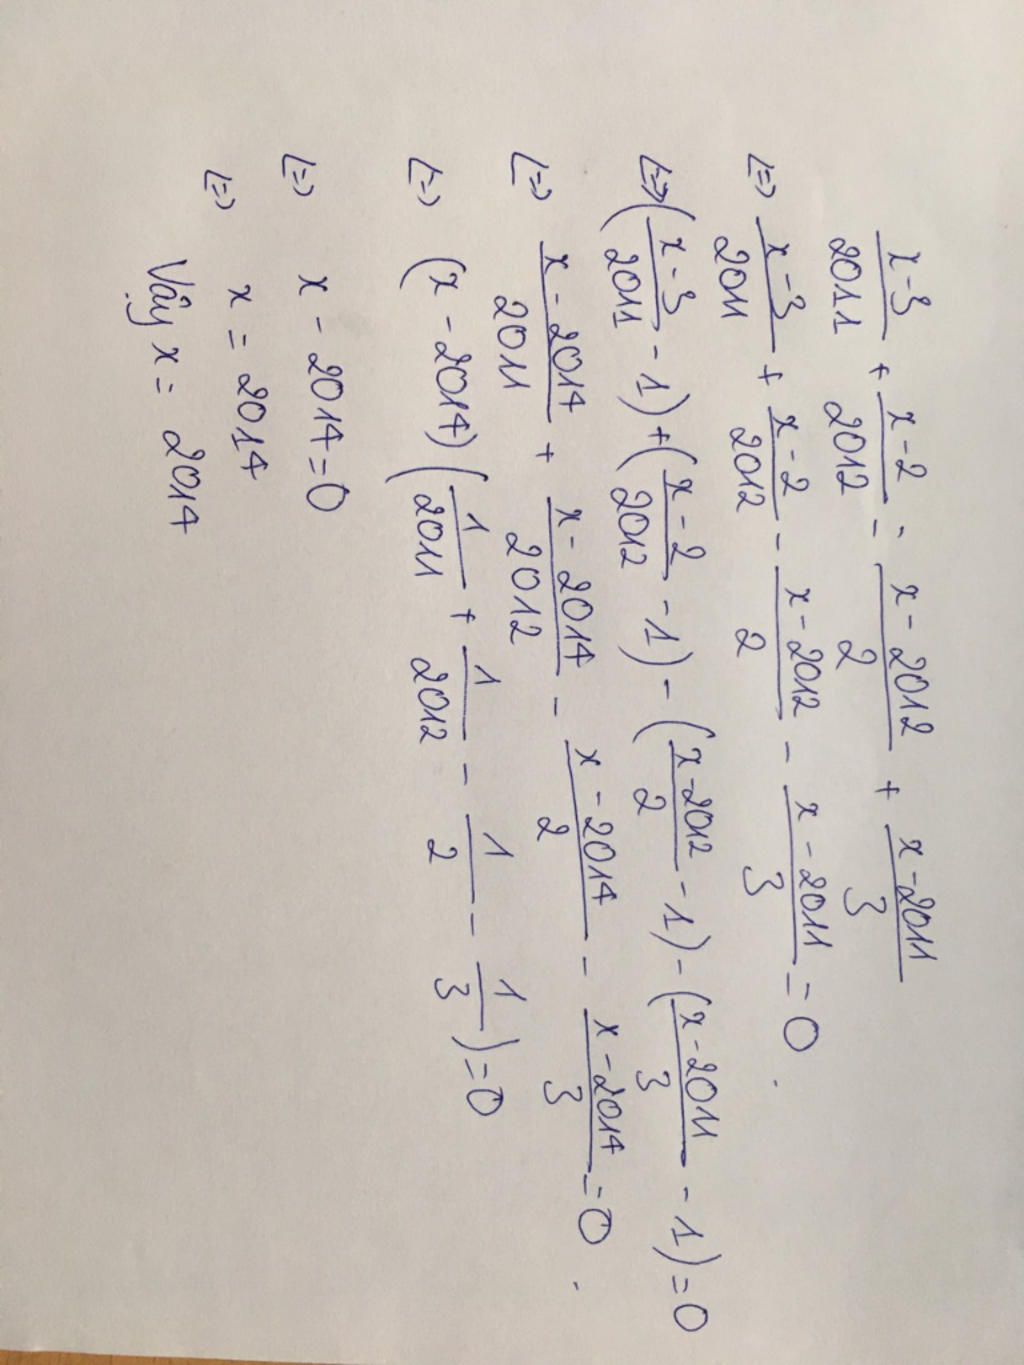 x-3/2011 + x-2/2012 = x-2012/2 + x-2011/3
<=> x-3/2011 + x-2/2012 - x-2012/2 - x-2011/3 = 0
<=> (x-3/2011 - 1) + (x-2/2012 - 1) - (x-2012/2 - 1) - (x-2011/3 - 1) = 0
<=> x-2014/2011 + x-2014/2012 - x-2014/2 - x-2014/3 = 0
<=> (x - 2014) (1/2011 + 1/2012 - 1/2 - 1/3) = 0
<=> x - 2014 = 0
<=> x = 2014
Vậy x = 2014